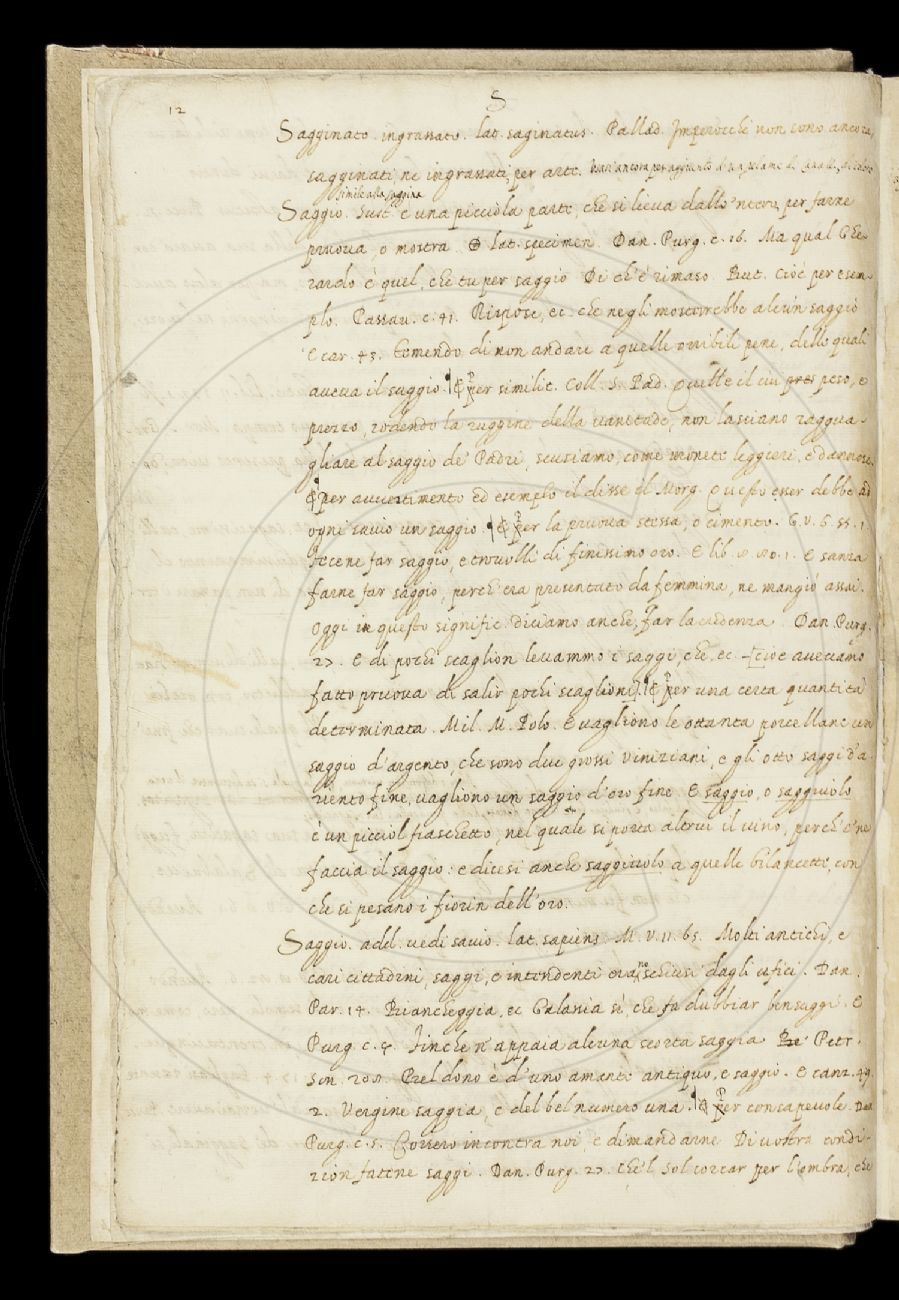 12
S
Sagginato. ingrassato. lat. saginatus. Pallad. Imperocchè non sono ancora,
sagginati, ne ingrassati, per arte.
simile alla saggina
Saggio. Sust. è una picciola parte, che si lieva dallo 'ntero, per farne
pruova, o mostra lat. specimen. Dan. Purg. c. 16. Ma qual Ghe-
rardo è quel, che tu per saggio Di ch' è rimaso But. Cioè per esem-
plo. Passau. c. 41. Rispose, ec. che negli mosterrebbe alcun saggio
E car. 43. Temendo di non andare a quelle orribili pene, dello quali
aveva il saggio. ¶ Per similit. Coll. S. Pad. Quelle il cui peso, e
prezzo, rodendo la ruggine della vanitade, non lasciano raggua-
gliare al saggio de' Padri, scusiamo, come monete leggieri, e dannose.
¶ per avvertimento ed esemplo il disse il Morg. Questo esser debbe ad
ogni savio un saggio ¶ Per la pruova stessa, o cimento. G. V. 6. 55. 1.
Fecene far saggio, e trovolli di finissimo oro. E lib. E sanza
farne far saggio, perch' era presentato da femmina, ne mangiò assai.
Oggi in questo signific. diciamo anche, far la credenza Dan. Purg.
27. E di pochi scaglion levammo i saggi, che, ec. [cioè avevamo
fatto pruova di salir pochi scaglioni]. ¶ Per una certa quantità
determinata. Mil. M. Polo. E vagliono le ottanta porcellane un
saggio d'argento, che sono due grossi Viniziani, e gli otto saggi d'a-
riento fine, vagliono un saggio d'oro fine E saggio, o saggiuolo
è un picciol fiaschetto, nel quale si porta altrui il vino, perch' e' ne
faccia il saggio: e dicesi anche saggiuolo a quelle bilancette, con
che si pesano i fiorin dell' oro.
Saggio. add. vedi savio. lat. sapiens M. V. 11. 65. Molti antichi, e
cari cittadini, saggi, e intendenti erano schiusi dagli ufici. Dan.
Par. 14. Biancheggia, ec Galassia sì, che fa dubbiar ben saggi. E
Purg. c. Finche n' appaia alcuna scorta saggia Petr.
Son. Prel dono è d'uno amante antiquo, e saggio. E canz. 49.
2. Vergine saggia, e del bel numero una. ¶ Per consapevole. Dan
Purg. c. 5. Corsero incontra noi, e dimandarne Di vostra condi-
zion fatene saggi. Dan. Purg. 27. Che 'l Sol corcar per l'ombra, che